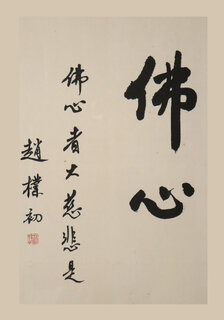 佛心
佛心者大慈悲是
趙樸初